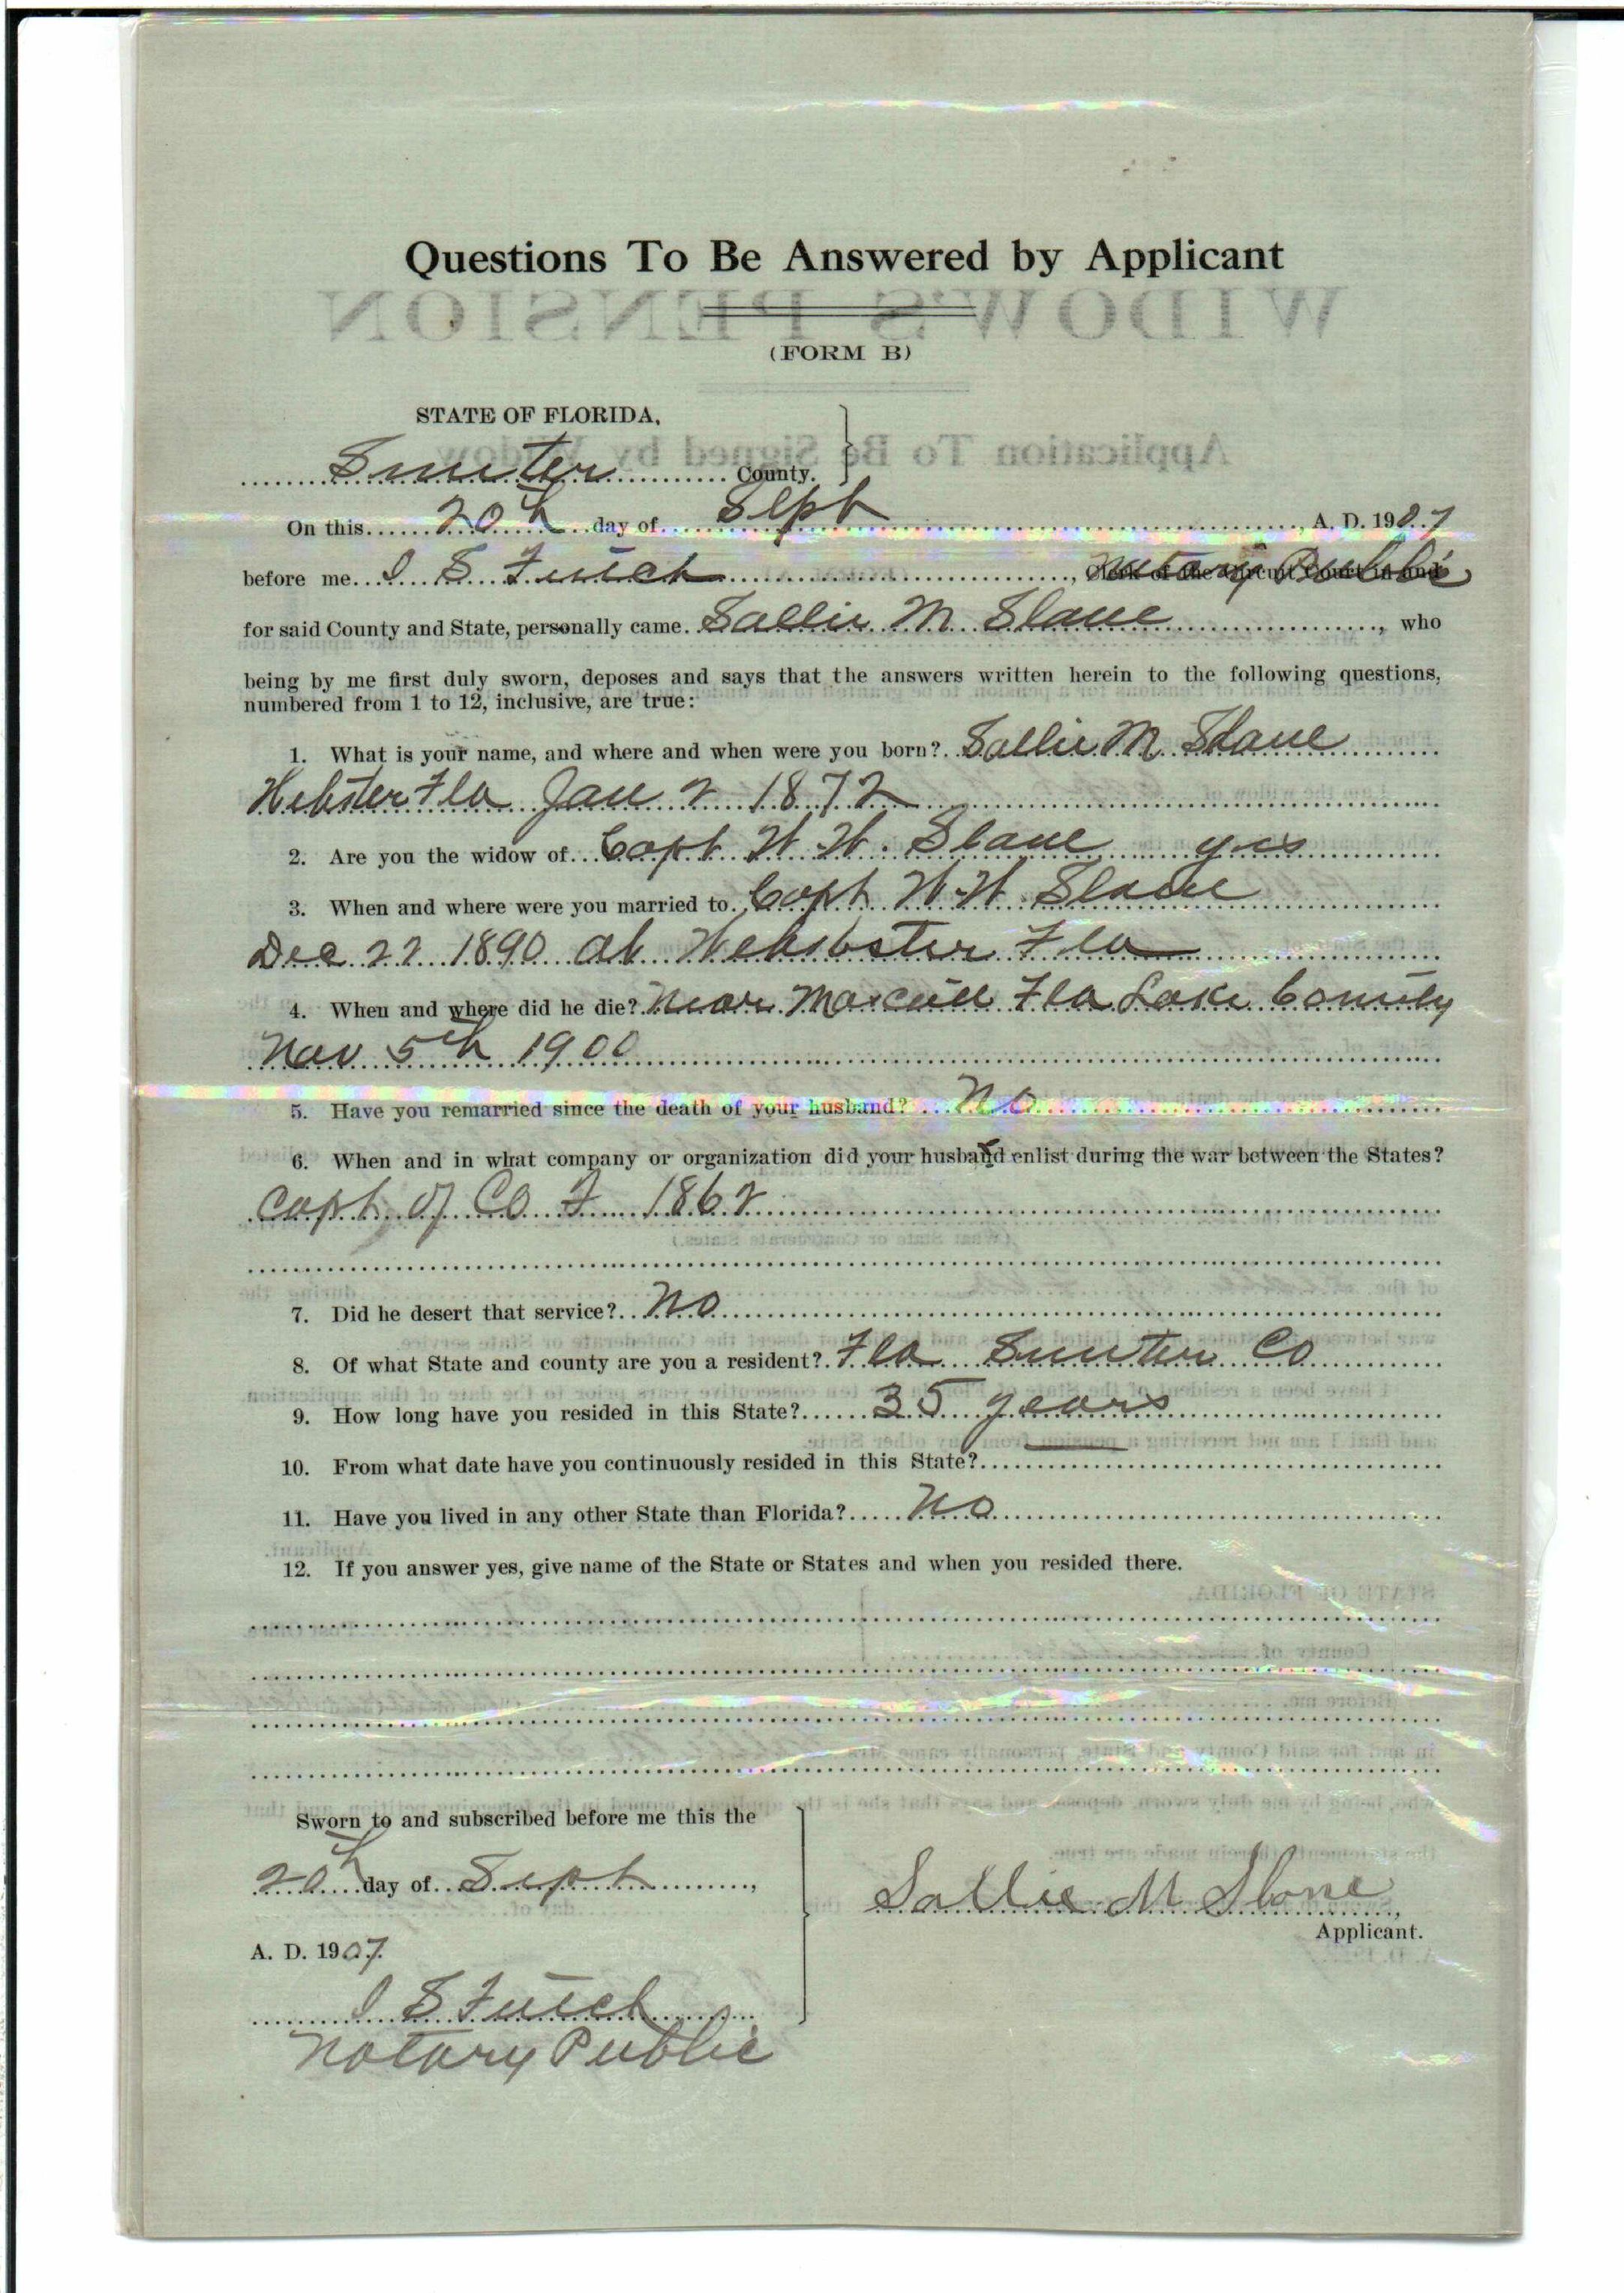 Questions To Be Answered by Applicant
WIDOW'S PENSION
(FORM B)
STATE OF FLORIDA,
Application To Be Signed by Widow
Sumter County.
On this 20th day of Sept, A. D. 1907
before me I S Futch, Clerk of the Circuit Court in and Notary Public
for said County and State, personally came Sallie M Slone, who
being by me first duly sworn, deposes and says that the answers written herein to the following questions,
numbered from 1 to 12, inclusive, are true:
1. What is your name, and where and when were you born? Sallie M Slone
Webster Fla Jan 2 1872
2. Are you the widow of Capt W. W. Slone yes
3. When and where were you married to Capt W. W Slone
Dec 22 1890 at Websbster Fla
4. When and where did he die? Near Fla Lake County
Nov 5th 1900
5. Have you remarried since the death of your husband? No
6. When and in what company or organization did your husband enlist during the war between the States?
Capt of Co F 1862
7. Did he desert that service? No
8. Of what State and county are you a resident? Fla Sumter Co
9. How long have you resided in this State? 35 years
10. From what date have you continuously resided in this State?
11. Have you lived in any other State than Florida? No
12. If you answer yes, give name of the State or States and when you resided there.
Sworn to and subscribed before me this the
20th day of Sept,
Sallie M Slone,
Applicant.
A. D. 1907.
I S Futch
Notary Public